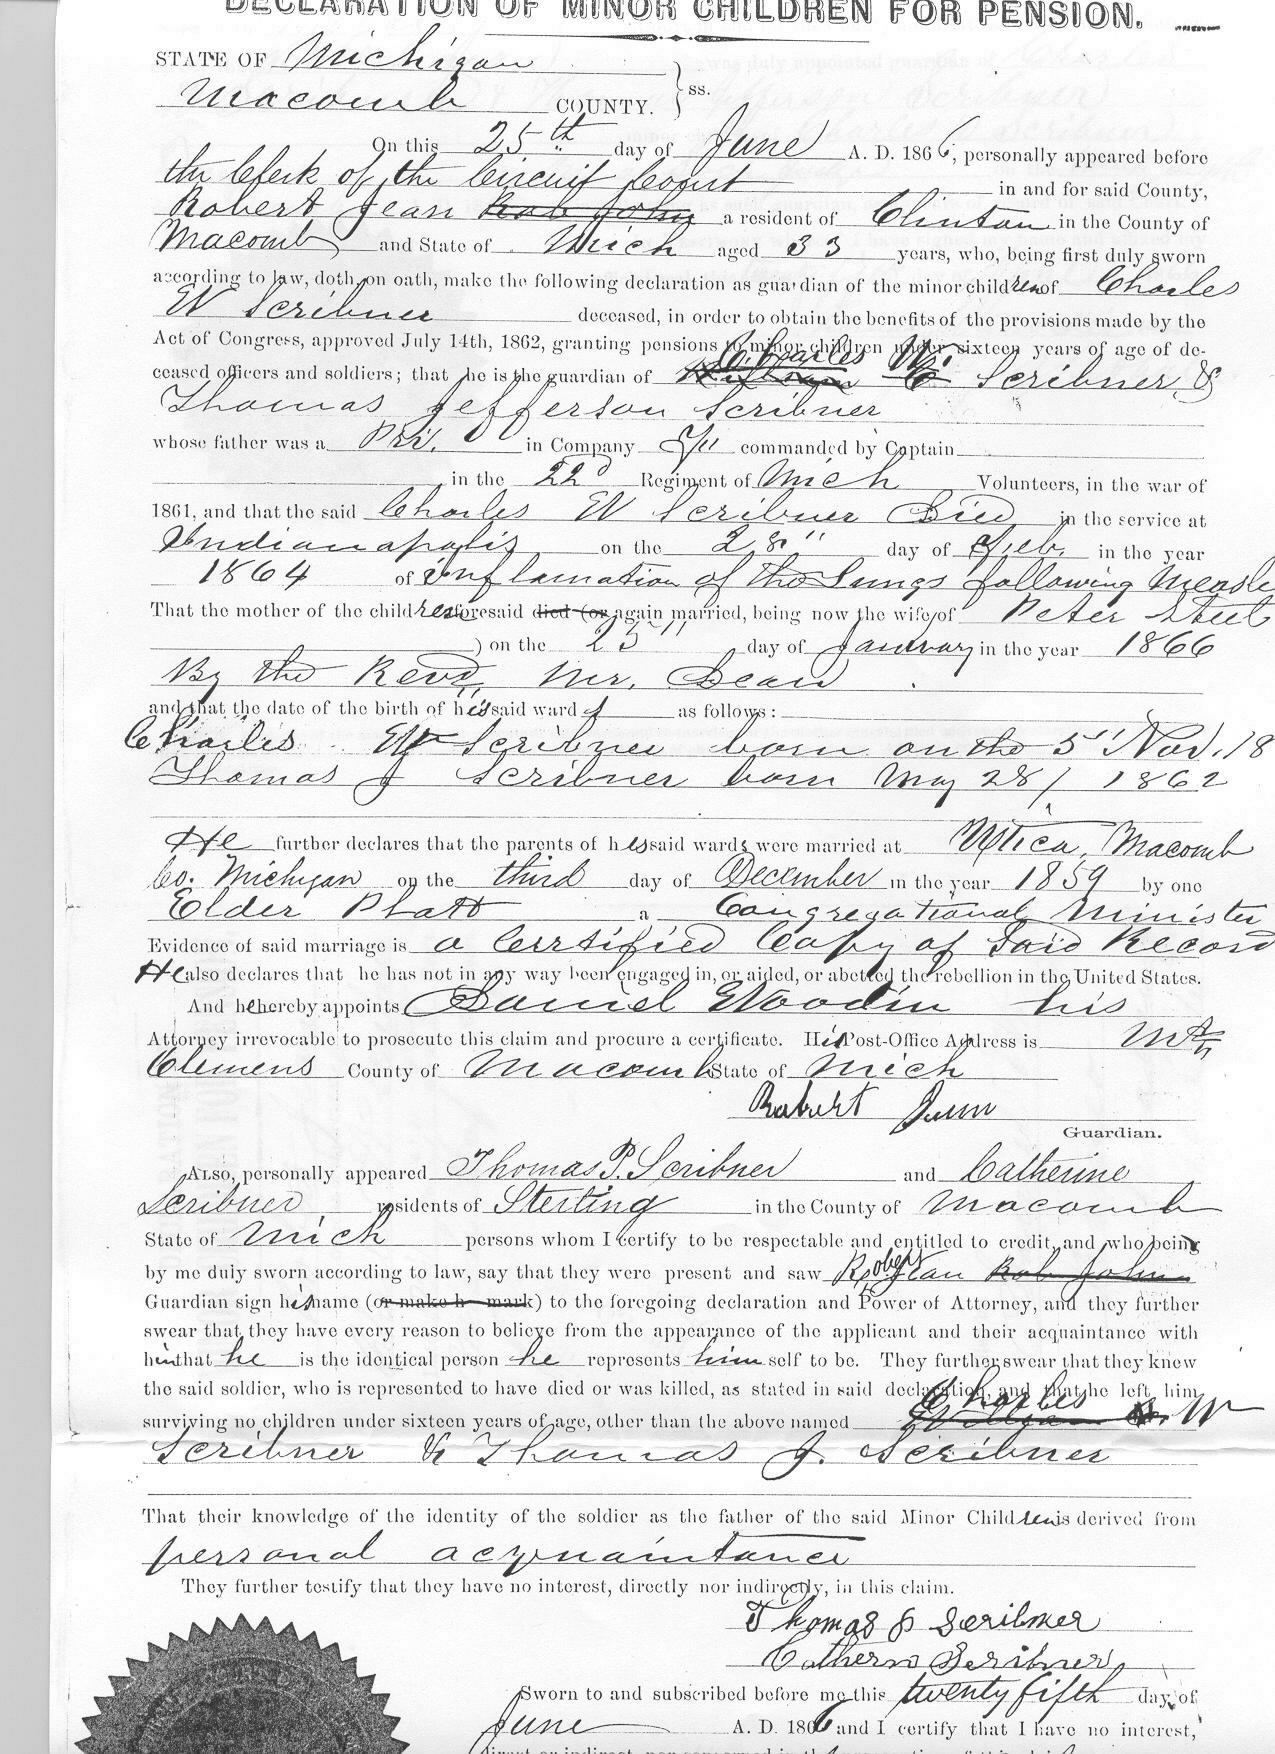 DECLARATION OF MINOR CHILDREN FOR PENSION.
STATE OF Michigan
Macomb COUNTY. } ss.
On this 25th day of June A. D. 1866, personally appeared before
the Clerk of the Circuit Court in and for said County,
Robert Jean Rob John a resident of Clinton in the County of
Macomb and State of Mich aged 33 years, who, being first duly sworn
according to law, doth, on oath, make the following declaration as guardian of the minor children of Charles
W Scribner deceased, in order to obtain the benefits of the provisions made by the
Act of Congress, approved July 14th, 1862, granting pensions to minor children under sixteen years of age of de-
ceased officers and soldiers; that he is the guardian of Charles W. Scribner &
Thomas Jefferson Scribner
whose father was a Pri. in Company commanded by Captain
in the 22d Regiment of Mich Volunteers, in the war of
1861, and that the said Charles W Scribner Died in the service at
Indianapolis on the 28" day of Feb. in the year
1864 of inflamation of the Lungs following Measle
That the mother of the children aforesaid died (or again married, being now the wife of Peter Steel
) on the 25" day of January in the year 1866
By the Revd, Mr. Dean
and that the date of the birth of his said wards as follows:
Charles W Scribner born on the 5" Nov. 18
Thomas J Scribner born May 28/ 1862
He further declares that the parents of his said wards were married at Utica, Macomb
Co. Michigan on the third day of December in the year 1859 by one
Elder Platt a Congregational Minister
Evidence of said marriage is a Certified Copy of Said Record
He also declares that he has not in any way been engaged in, or aided, or abetted the rebellion in the United States.
And he hereby appoints Daniel Woodin his
Attorney irrevocable to prosecute this claim and procure a certificate. His Post-Office Address is Mt
Clemens County of Macomb State of Mich
Robert Jean
Guardian.
Also, personally appeared Thomas P. Scribner and Catherine
Scribner residents of Sterling in the County of Macomb
State of Mich persons whom I certify to be respectable and entitled to credit, and who being
by me duly sworn according to law, say that they were present and saw Robert Jean Rob John
Guardian sign his name (or make h mark) to the foregoing declaration and Power of Attorney, and they further
swear that they have every reason to believe from the appearance of the applicant and their acquaintance with
him that he is the identical person he represents him self to be. They further swear that they knew
the said soldier, who is represented to have died or was killed, as stated in said declaration, and that he left him
surviving no children under sixteen years of age, other than the above named Charles W
Scribner & Thomas J. Scribner
That their knowledge of the identity of the soldier as the father of the said Minor Children is derived from
personal acquaintance
They further testify that they have no interest, directly nor indirectly, in this claim.
Thomas P Scribner
Cathern Scribner
Sworn to and subscribed before me this twenty fifth day of
June A. D. 1866 and I certify that I have no interest,